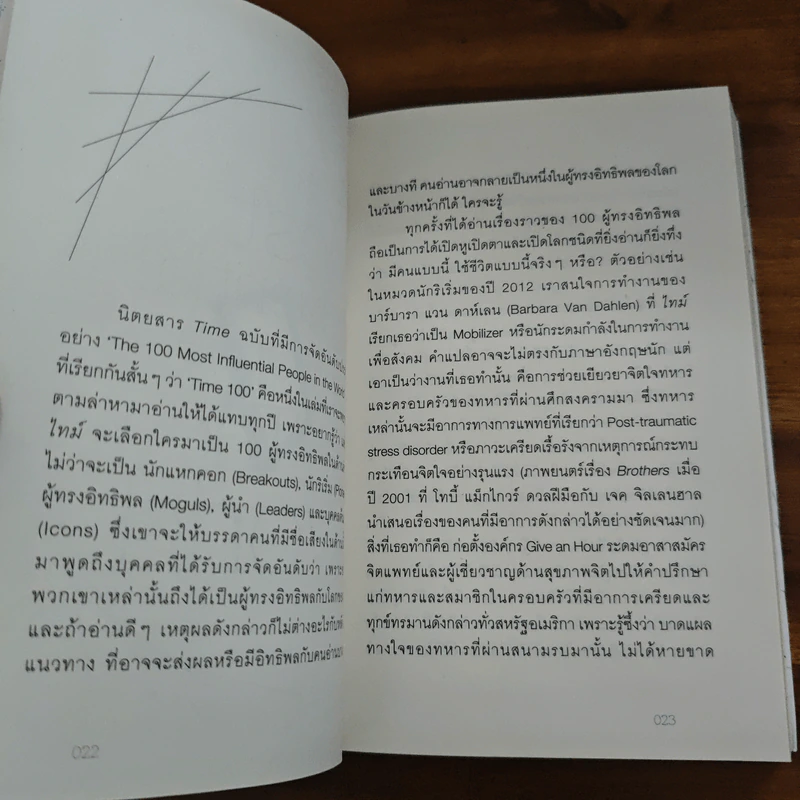 นิตยสาร Time ฉบับที่มีการจัดอันดับ
อย่าง ‘The 100 Most Influential People in the World
ที่เรียกกันสั้นๆ ว่า ‘Time 100’ คือหนึ่งในเล่มที่เราจะ
ตามล่าหามาอ่านให้ได้แทบทุกปี เพราะอยากรู้ว่า
ไทม์ จะเลือกใครมาเป็น 100 ผู้ทรงอิทธิพลใน
ไม่ว่าจะเป็น นักแหกคอก (Breakouts), นักริเริ่ม
ผู้ทรงอิทธิพล (Moguls), ผู้นำ (Leaders) และบุคคล
(Icons) ซึ่งเขาจะให้บรรดาคนที่มีชื่อเสียงใน
มาพูดถึงบุคคลที่ได้รับการจัดอันดับว่า เพราะ
พวกเขาเหล่านั้นถึงได้เป็นผู้ทรงอิทธิพลกับโลก
และถ้าอ่านดีๆ เหตุผลดังกล่าวก็ไม่ต่างอะไรกับ
แนวทาง ที่อาจจะส่งผลหรือมีอิทธิพลกับคนอ่าน
022
และบางที คนอ่านอาจกลายเป็นหนึ่งในผู้ทรงอิทธิพลของโลก
ในวันข้างหน้าก็ได้ ใครจะรู้
ทุกครั้งที่ได้อ่านเรื่องราวของ 100 ผู้ทรงอิทธิพล
ถือเป็นการได้เปิดหูเปิดตาและเปิดโลกชนิดที่ยิ่งอ่านก็ยิ่งทึ่ง
ว่า มีคนแบบนี้ ใช้ชีวิตแบบนี้จริงๆ หรือ? ตัวอย่างเช่น
ในหมวดนักริเริ่มของปี 2012 เราสนใจการทำงานของ
บาร์บารา แวน ดาห์เลน (Barbara Van Dahlen) ที่ ไทม์
เรียกเธอว่าเป็น Mobilizer หรือนักระดมกำลังในการทำงาน
เพื่อสังคม คำแปลอาจจะไม่ตรงกับภาษาอังกฤษนัก แต่
เอาเป็นว่างานที่เธอทำนั้น คือการช่วยเยียวยาจิตใจทหาร
และครอบครัวของทหารที่ผ่านศึกสงครามมา ซึ่งทหาร
เหล่านั้นจะมีอาการทางการแพทย์ที่เรียกว่า Post-traumatic
stress disorder หรือภาวะเครียดเรื้อรังจากเหตุการณ์กระทบ
กระเทือนจิตใจอย่างรุนแรง (ภาพยนตร์เรื่อง Brothers เมื่อ
ปี 2001 ที่ โทบี้ แม็กไกวร์ ดวลฝีมือกับ เจค จิลเลนฮาล
นำเสนอเรื่องของคนที่มีอาการดังกล่าวได้อย่างชัดเจนมาก)
สิ่งที่เธอทำก็คือ ก่อตั้งองค์กร Give an Hour ระดมอาสาสมัคร
จิตแพทย์และผู้เชี่ยวชาญด้านสุขภาพจิตไปให้คำปรึกษา
แก่ทหารและสมาชิกในครอบครัวที่มีอาการเครียดและ
ทุกข์ทรมานดังกล่าวทั่วสหรัฐอเมริกา เพราะรู้ซึ้งว่า บาดแผล
ทางใจของทหารที่ผ่านสนามรบมานั้น ไม่ได้หายขาด
023